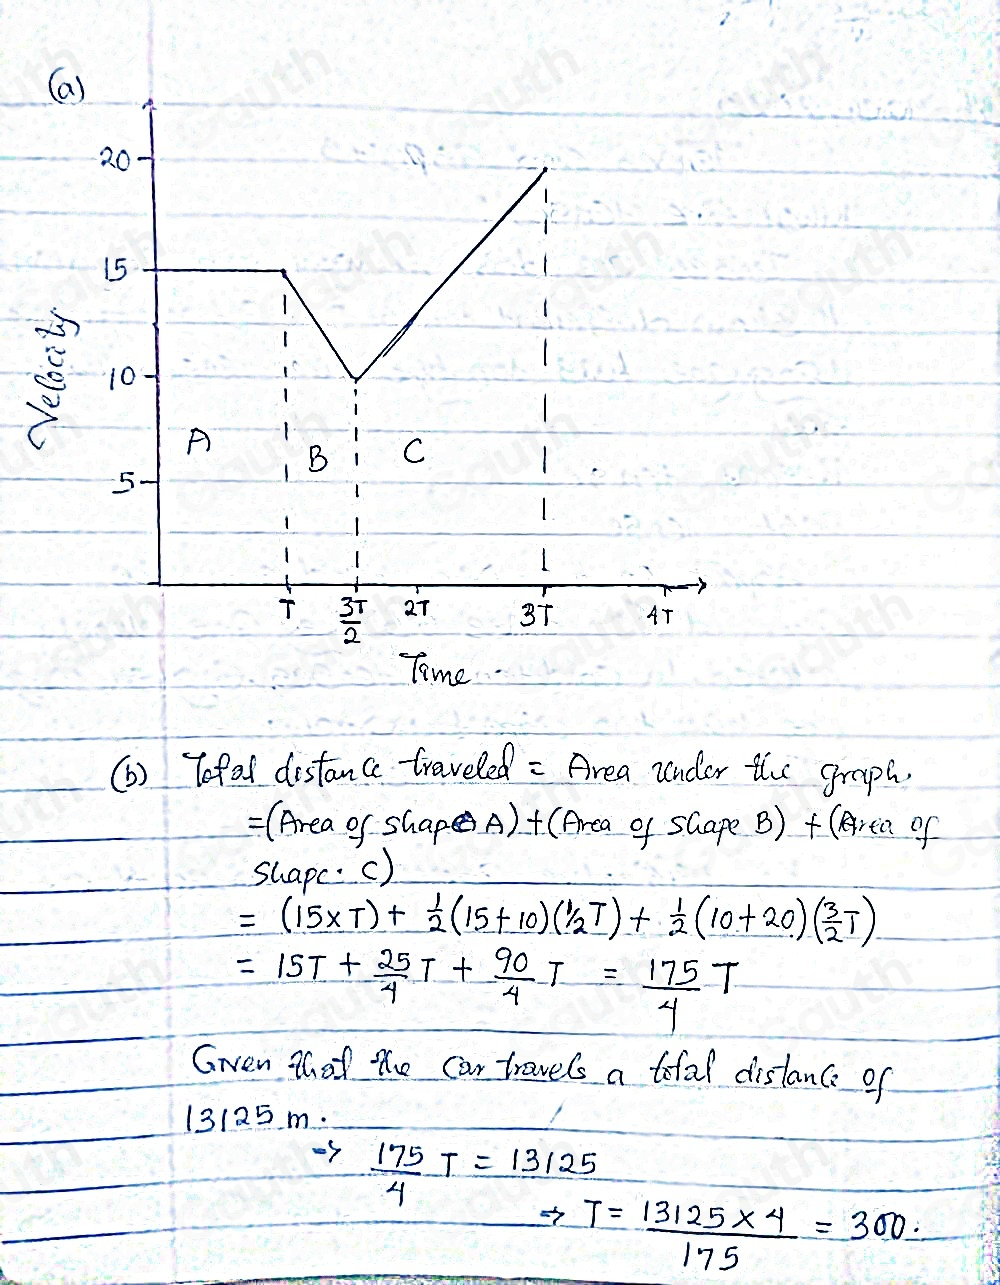 (a)
20
15
10
5
Velocity
A
B
C
T
3T/2
2T
3T
4T
Time
(b) Total distance traveled = Area under the graph.
=(Area of shape A)+(Area of shape B) +(Area of
shape. C)
= (15×T)+ 1/2(15+10)(1/2T)+ 1/2(10+20)(3/2T)
= 15T + 25/4 T + 90/4 T = 175/4 T
Given that the car travels a total distance of
13125 m.
⇒ 175/4 T = 13125
⇒ T = 13125×4/175 = 300.